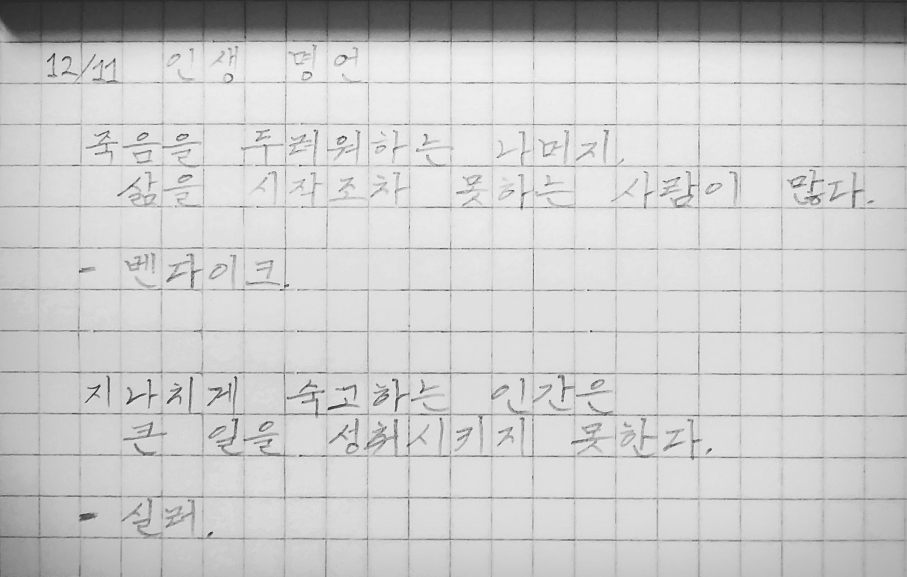 12/11 인생 명언
죽음을 두려워하는 나머지,
삶을 시작조차 못하는 사람이 많다.
- 벤다이크.
지나치게 숙고하는 인간은
큰 일을 성취시키지 못한다.
- 실러.